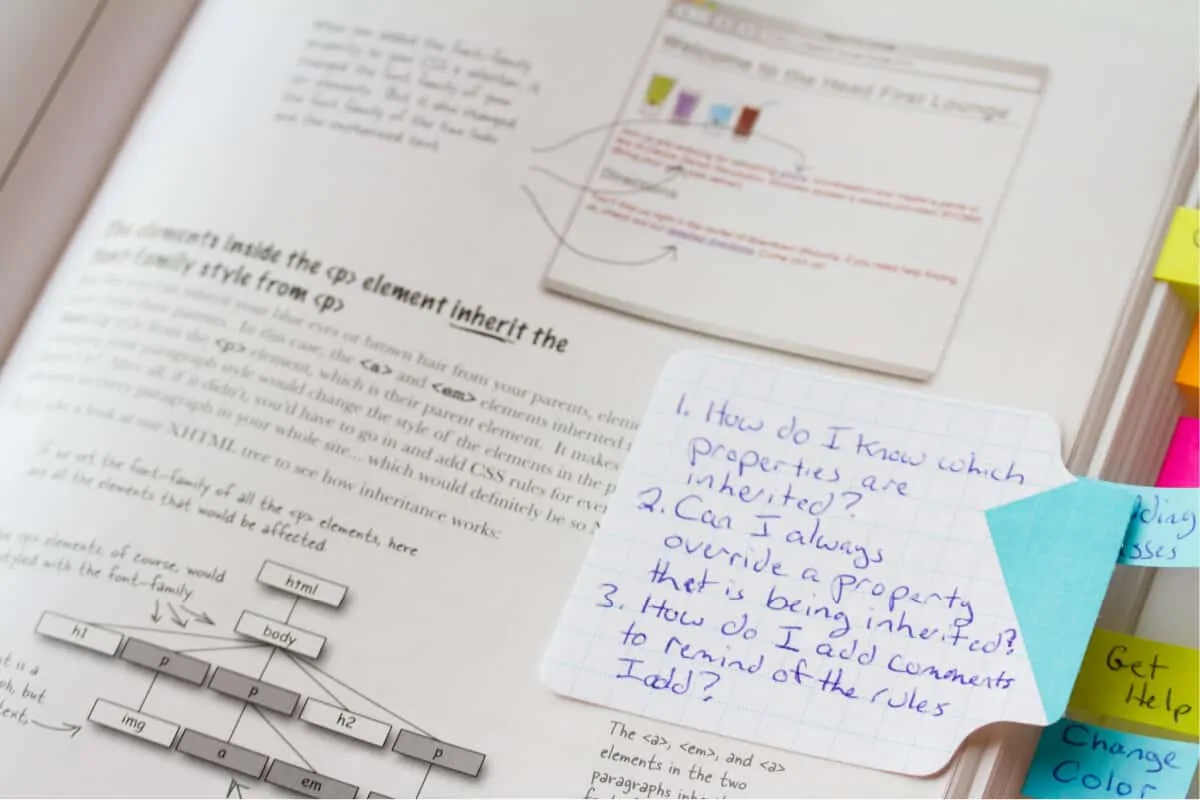 When you added the font-family
property to your CSS p selector, it
changed the font family of your
<p> elements. But it also changed
the font family of the two links
and the emphasized text.
Welcome to the Head First Lounge
Directions
The elements inside the <p> element inherit the
font-family style from <p>
inherit your blue eyes or brown hair from your parents, elem
from their parents. In this case, the <a> and <em> elements inherited
style from the <p> element, which is their parent element. It makes
paragraph style would change the style of the elements in the p
After all, if it didn't, you'd have to go in and add CSS rules for ever
paragraph in your whole site... which would definitely be so
take a look at our XHTML tree to see how inheritance works:
If we set the font-family of all the <p> elements, here
are all the elements that would be affected.
<p> elements, of course, would
styled with the font-family
html
body
h1
p
p
h2
p
img
a
em
t is a
ph, but
text.
The <a>, <em>, and <a>
elements in the two
paragraphs
1. How do I know which
properties are
inherited?
2. Can I always
override a property
that is being inherited?
3. How do I add comments
to remind of the rules
I add?
dding
sses
Get
Help
Change
Color